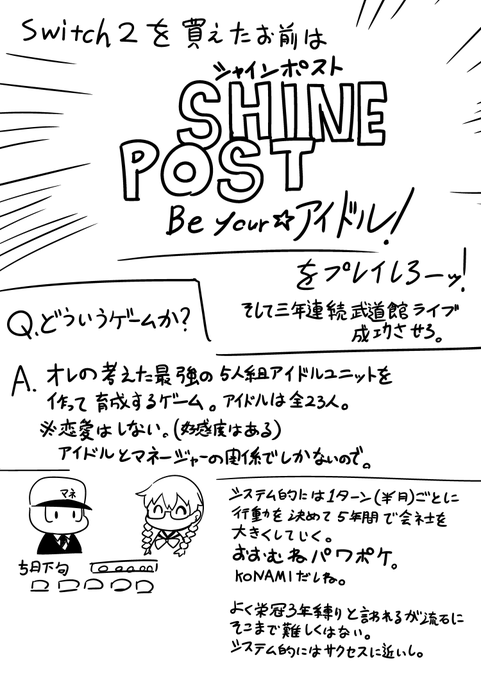 Switch2を買えたお前は
シャインポスト
SHINE
POST
Be Your☆アイドル!
をプレイしろーッ!
そして三年連続武道館ライブ
成功させろ。
Q.どういうゲームか?
A.オレの考えた最強の5人組アイドルユニットを
作って育成するゲーム。アイドルは全23人。
※恋愛はしない。(好感度はある)
アイドルとマネージャーの関係でしかないので。
マネ
5月下旬
システム的には1ターン(半月)ごとに
行動を決めて5年間で会社を
大きくしていく。
おおむねパワポケ。
KONAMIだしね。
よく栄冠3年縛りと言われるが流石に
そこまで難しくはない。
システム的にはサクセスに近いし。